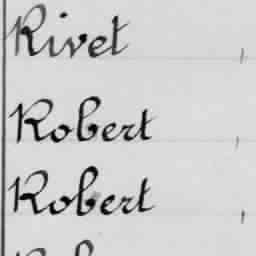 Rivet ,
Robert ,
Robert ,